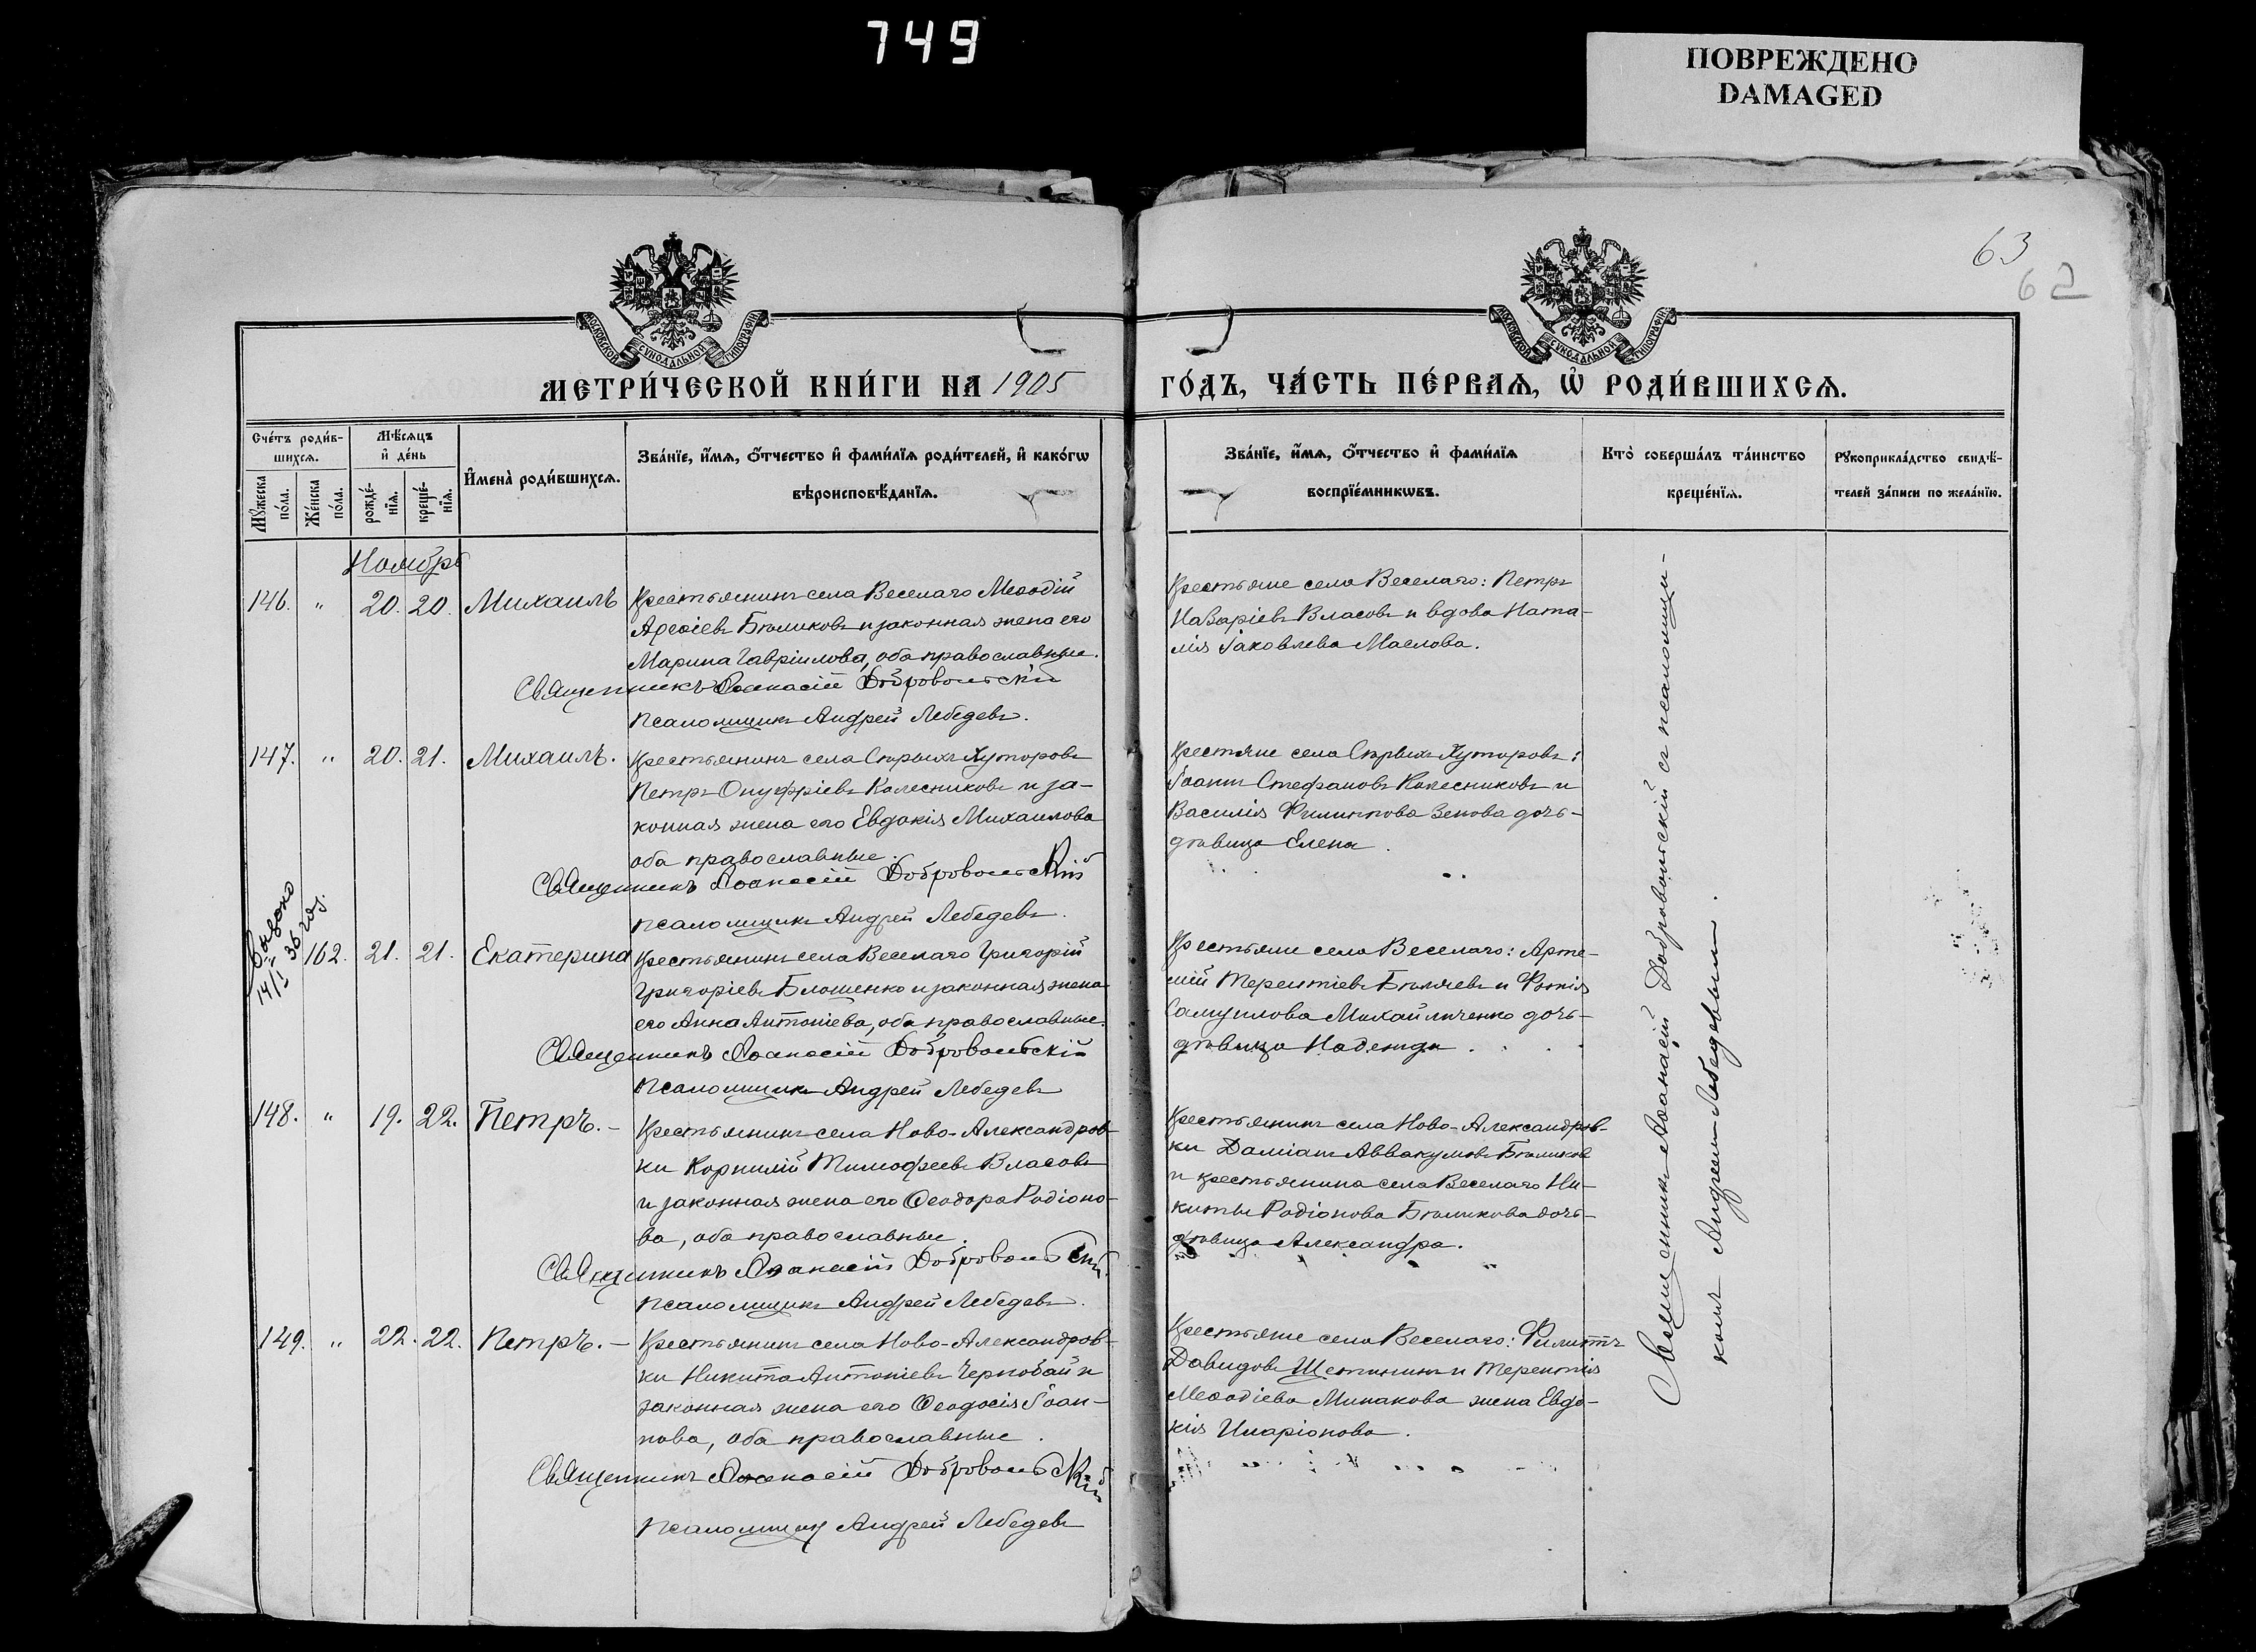 749
ПОВРЕЖДЕНО
DAMAGED
63
62
МОСКОВСКОЙ СѴНОДАЛЬНОЙ ТИПОГРАФІИ
МОСКОВСКОЙ СѴНОДАЛЬНОЙ ТИПОГРАФІИ
МЕТРИ́ЧЕСКОЙ КНИ́ГИ НА 1905
ГО́ДЪ, ЧА́СТЬ ПЕ́РВАѦ, Ѡ҆ РОДИ́ВШИХСѦ.
Сче́тъ роди́в-
шихсѧ.
Мꙋ́жеска по́ла.
Же́нска по́ла.
Мѣ́сѧцъ
и҆ де́нь
рожде́-нїѧ.
креще́-нїѧ.
И҆мена̀ роди́вшихсѧ.
Зва́нїе, и҆́мѧ, ѻ҆́тчество и҆ фами́лїѧ роди́телей, и҆ како́гѡ
вѣроисповѣ́данїѧ.
Зва́нїе, и҆́мѧ, ѻ҆́тчество и҆ фами́лїѧ
воспрїе́мникѡвъ.
Кто̀ соверша́лъ та́инство
креще́нїѧ.
Рꙋкоприкла́дство свидѣ́-
телей за́писи по жела́нїю.
Ноябрь
146. " 20. 20. Михаилъ
Крестьянинъ села Веселаго Меѳодій
Арефіевъ Бѣликовъ и законная жена его
Марина Гавріилова, оба православные.
Священникъ Аѳанасій Добровольскій
Псаломщикъ Андрей Лебедевъ.
Крестьяне села Веселаго: Петръ
Назаріевъ Власовъ и вдова Ната-
лія Іаковлева Маслова.
147. " 20. 21. Михаилъ.
Крестьянинъ села Старыхъ Хуторовъ
Петръ Онуфріевъ Колесниковъ и за-
конная жена его Евдокія Михаилова
оба православные.
Священникъ Аѳанасій Добровольскій
Псаломщикъ Андрей Лебедевъ.
Крестьяне села Старыхъ Хуторовъ:
Іоаннъ Стефановъ Колесниковъ и
Василія Филиппова Зенова дочь-
дѣвица Елена.
Выдано
14/I 36 год.
162. 21. 21. Екатерина
Крестьянинъ села Веселаго Григорій
Григоріевъ Блошенко и законная жена
его Анна Антоніева, оба православные.
Священникъ Аѳанасій Добровольскій
Псаломщикъ Андрей Лебедевъ
Крестьяне села Веселаго: Арте-
мій Терентіевъ Бѣляевъ и Фотія
Самуилова Михайличенко дочь-
дѣвица Надежда.
148. " 19. 22. Петръ.-
Крестьянинъ села Ново-Александров-
ки Корнилій Тимофеевъ Власовъ
и законная жена его Ѳеодора Родіоно-
ва, оба православные.
Священникъ Аѳанасій Добровольскій.
Псаломщикъ Андрей Лебедевъ.
Крестьянинъ села Ново-Александров-
ки Даміанъ Аввакумовъ Бѣликовъ
и крестьянина села Веселаго Ни-
киты Родіонова Бѣликова дочь-
дѣвица Александра.
149. " 22. 22. Петръ.-
Крестьянинъ села Ново-Александров-
ки Никита Антоніевъ Чернобай и
законная жена его Ѳеодосія Іоан-
нова, оба православные.
Священникъ Аѳанасій Добровольскій
Псаломщикъ Андрей Лебедевъ
Крестьяне села Веселаго: Филиппъ
Давидовъ Щетининъ и Терентія
Меѳодіева Минакова жена Евдо-
кія Иларіонова.
Священникъ Аѳанасій Добровольскій съ псаломщи-
комъ Андреемъ Лебедевымъ.